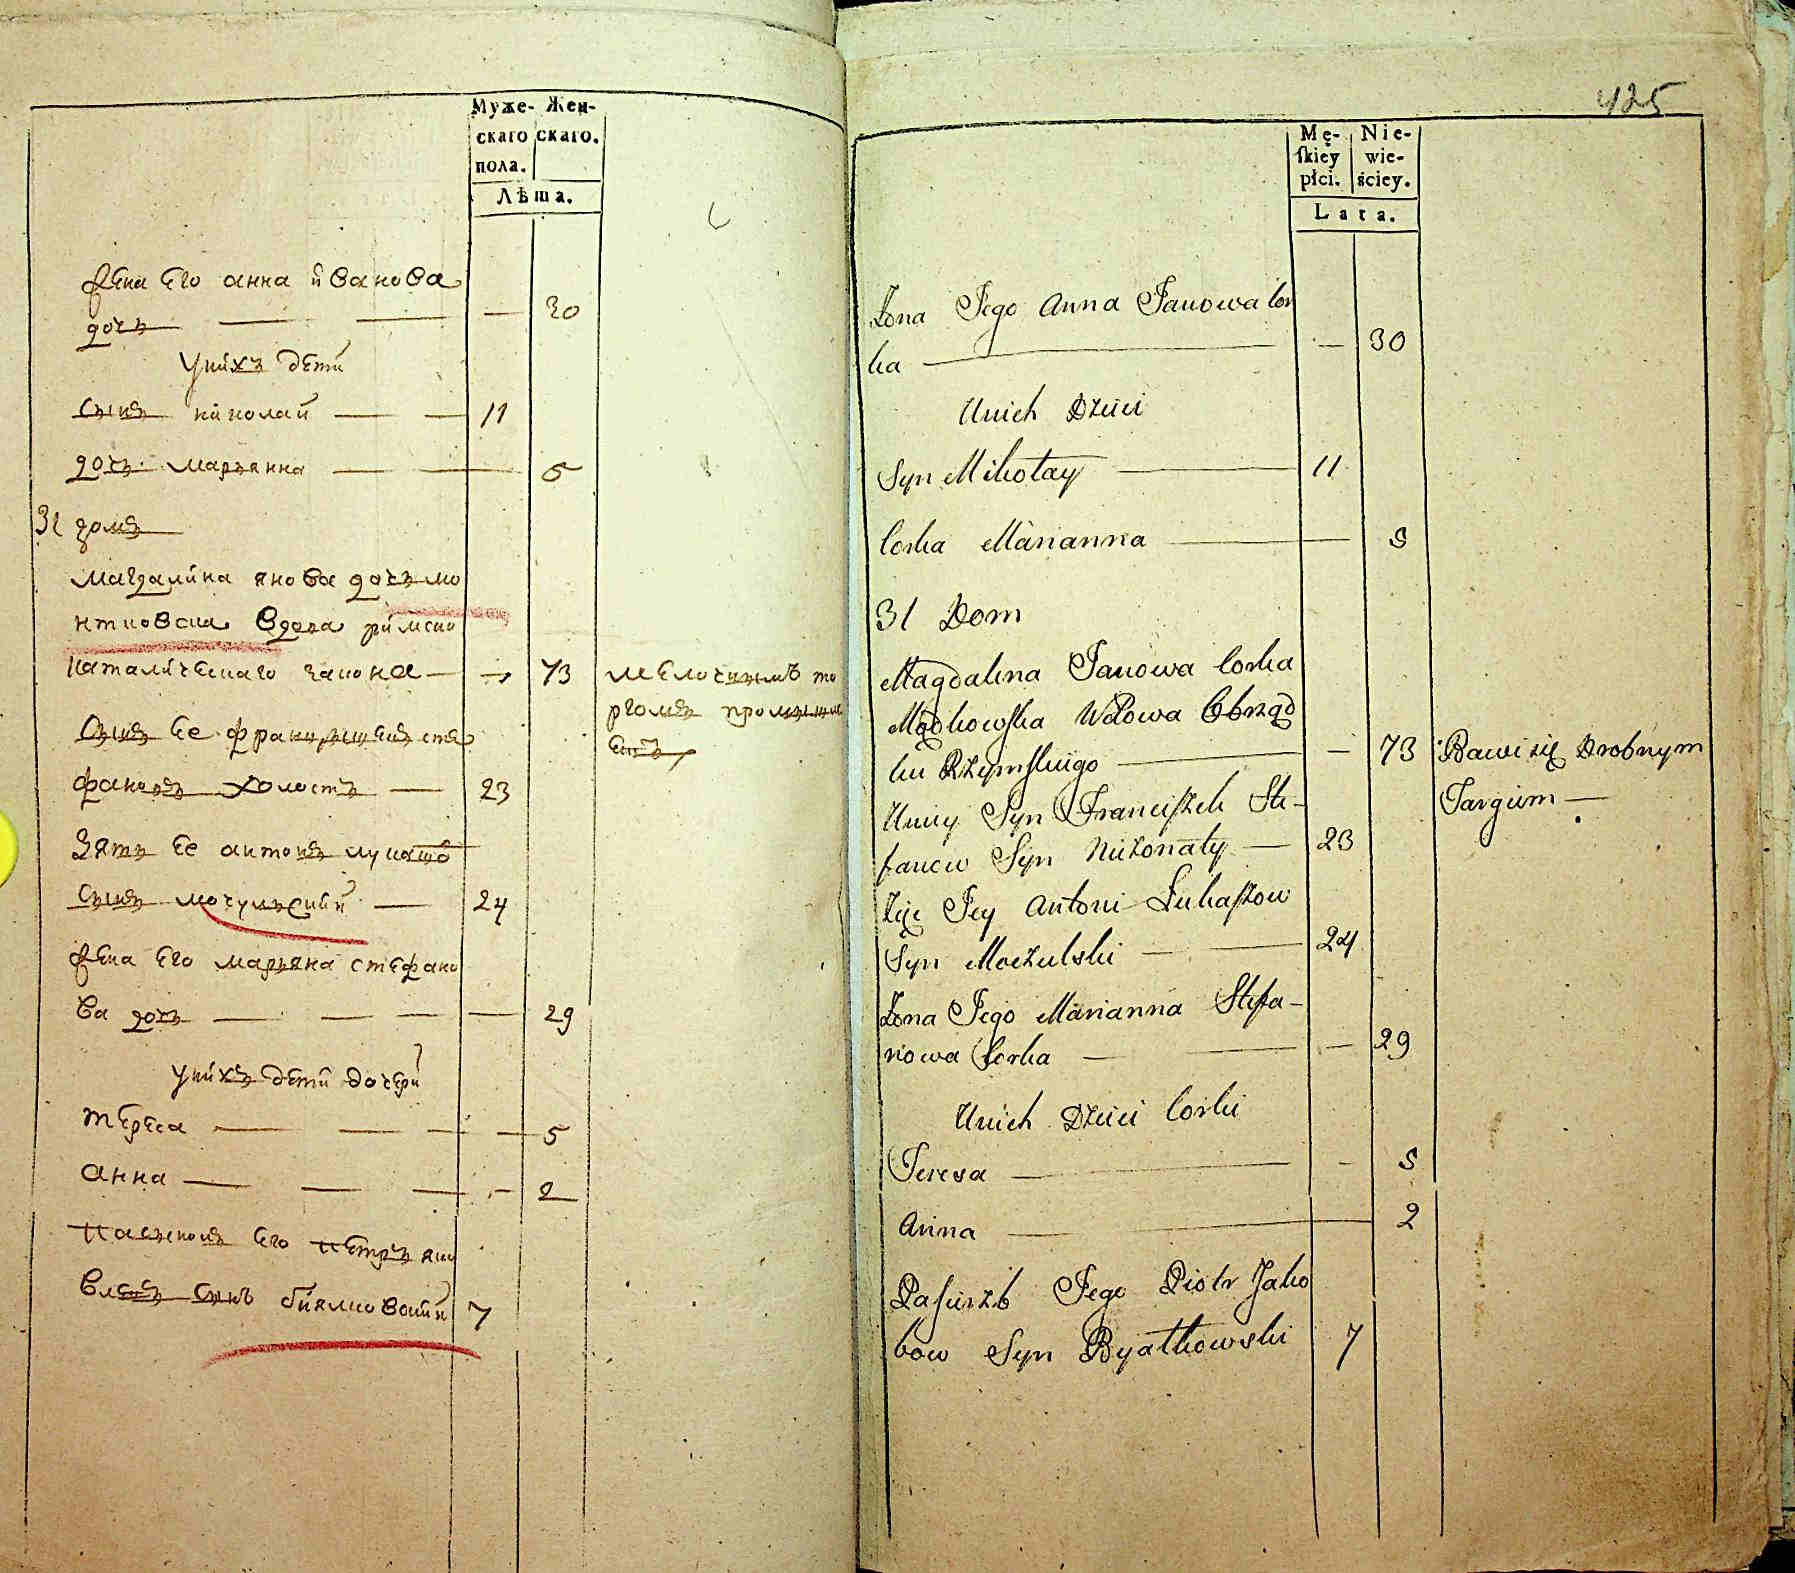 Муже- Жен-
скаго скаго.
пола.
Лѣта.
жена Его анна иванова
дочь — — — 30
у нихъ дети
Сынъ николай — — 11
дочь марьянна — — 5
31 домъ
магдалина янова дочь мо
нтковска вдова римско
каталическаго закона — — 73 мелочнымъ то
ргомъ промыш
Сынъ Ее францишекъ сте
фановъ холостъ — 23
Зять Ее антонъ лукашо
Сынъ мочульский — 24
жена Его марьяна стефано
ва дочь — — — — 29
у нихъ дети дочери
тереса — — — — 5
анна — — — — 2
пасынокъ Его петръ яко
влевъ сынъ биялковский 7
425
Mę- Nie-
skiey wie-
płci. ściey.
Lata.
Żona Jego Anna Janowa Cor
ka — — 30
Unich Dzieci
Syn Mikołay — 11
Corka Marianna — 5
31 Dom
Magdalena Janowa Corka
Mądkowska Wdowa Obrząd
ku Rzymskiego — — 73 Bawi się Drobnym
Targiem —
Uniey Syn Franciszek Ste-
fanow Syn Nieżonaty — 23
Zięć Jey Antoni Łukaszow
Syn Moczulski — — 24
Żona Jego Marianna Stefa-
nowa Corka — — — 29
Unich Dzieci Corki
Teresa — - 5
Anna — 2
Pasierzb Jego Piotr Jako
bow Syn Byałkowski 7